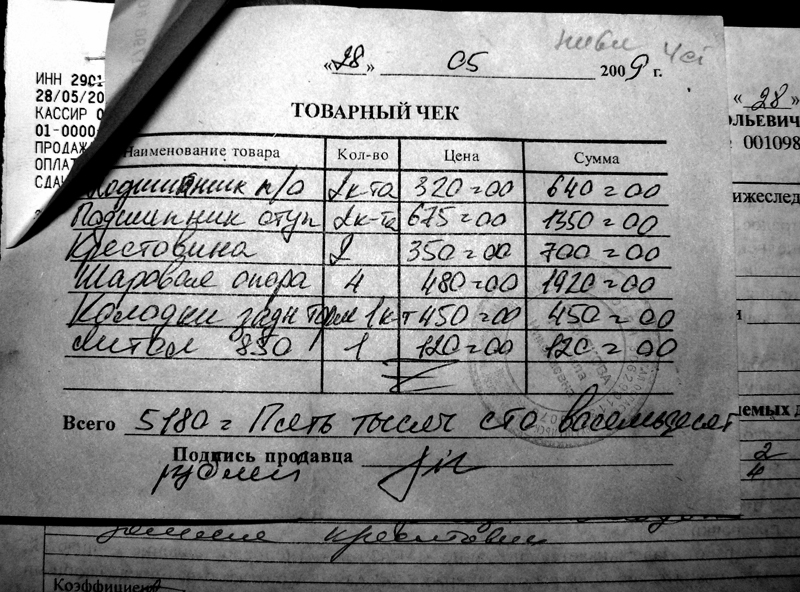 ниви Чеб
«28» 05 2009 г.
ИНН 2901
28/05/20
КАССИР 0
01-0000
ПРОДАЖ
ОПЛАТ
СДАЧ
ТОВАРНЫЙ ЧЕК
Наименование товара Кол-во Цена Сумма
Подшипник п/о 2к-та 320=00 640=00
Подшипник ступ 2к-та 675=00 1350=00
Крестовина 2 350=00 700=00
Шаровая опора 4 480=00 1920=00
Колодки задн торм 1к-т 450=00 450=00
Литол 850 1 120=00 120=00
Всего 5180= Пять тысяч сто восемьдесят
Подпись продавца
рублей
« 28 »
ОЛЬЕВИЧ
001098
ижеслед
и
аемых д
2
4
замена крестовин
Коэффициен